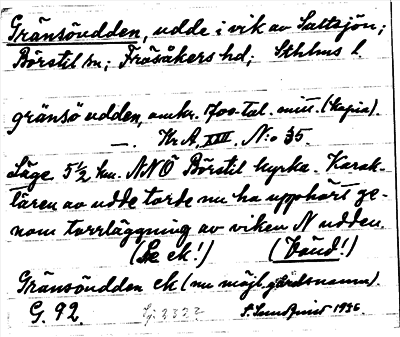 Gränsöudden, udde i vik av Saltsjön;
Börstil sn; Frösåkers hd; Sthlms l.
gränsö udden, omkr. 1700-tal. mitt. (kopia).
—. Kr.A. XIII. N:o 35.
Läge 5½ km. NNÖ Börstil kyrka. Karak-
tären av udde torde nu ha upphört ge-
nom torrläggning av viken N udden.
(Se ek!) (Vänd!)
Gränsöudden ek (nu möjl. gårdsnamn).
G. 92. 1936.